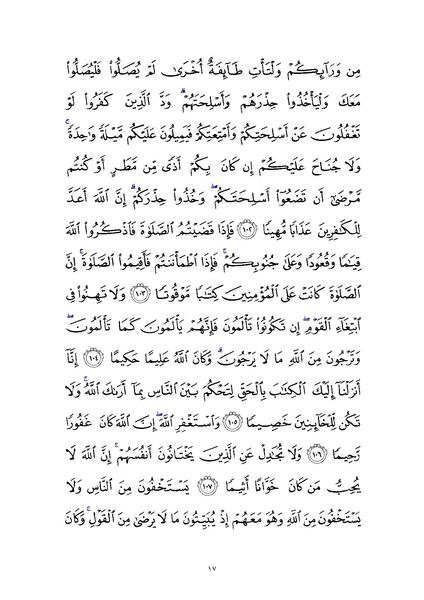 مِن وَرَآئِكُمْ وَلْتَأْتِ طَآئِفَةٌ أُخْرَىٰ لَمْ يُصَلُّوا۟ فَلْيُصَلُّوا۟
مَعَكَ وَلْيَأْخُذُوا۟ حِذْرَهُمْ وَأَسْلِحَتَهُمْ ۗ وَدَّ ٱلَّذِينَ كَفَرُوا۟ لَوْ
تَغْفُلُونَ عَنْ أَسْلِحَتِكُمْ وَأَمْتِعَتِكُمْ فَيَمِيلُونَ عَلَيْكُم مَّيْلَةً وَٰحِدَةً ۚ
وَلَا جُنَاحَ عَلَيْكُمْ إِن كَانَ بِكُمْ أَذًى مِّن مَّطَرٍ أَوْ كُنتُم
مَّرْضَىٰٓ أَن تَضَعُوٓا۟ أَسْلِحَتَكُمْ ۖ وَخُذُوا۟ حِذْرَكُمْ ۗ إِنَّ ٱللَّهَ أَعَدَّ
لِلْكَٰفِرِينَ عَذَابًا مُّهِينًا ١٠٢ فَإِذَا قَضَيْتُمُ ٱلصَّلَوٰةَ فَٱذْكُرُوا۟ ٱللَّهَ
قِيَٰمًا وَقُعُودًا وَعَلَىٰ جُنُوبِكُمْ ۚ فَإِذَا ٱطْمَأْنَنتُمْ فَأَقِيمُوا۟ ٱلصَّلَوٰةَ ۚ إِنَّ
ٱلصَّلَوٰةَ كَانَتْ عَلَى ٱلْمُؤْمِنِينَ كِتَٰبًا مَّوْقُوتًا ١٠٣ وَلَا تَهِنُوا۟ فِى
ٱبْتِغَآءِ ٱلْقَوْمِ ۖ إِن تَكُونُوا۟ تَأْلَمُونَ فَإِنَّهُمْ يَأْلَمُونَ كَمَا تَأْلَمُونَ ۖ
وَتَرْجُونَ مِنَ ٱللَّهِ مَا لَا يَرْجُونَ ۗ وَكَانَ ٱللَّهُ عَلِيمًا حَكِيمًا ١٠٤ إِنَّآ
أَنزَلْنَآ إِلَيْكَ ٱلْكِتَٰبَ بِٱلْحَقِّ لِتَحْكُمَ بَيْنَ ٱلنَّاسِ بِمَآ أَرَىٰكَ ٱللَّهُ ۚ وَلَا
تَكُن لِّلْخَآئِنِينَ خَصِيمًا ١٠٥ وَٱسْتَغْفِرِ ٱللَّهَ ۖ إِنَّ ٱللَّهَ كَانَ غَفُورًا
رَّحِيمًا ١٠٦ وَلَا تُجَٰدِلْ عَنِ ٱلَّذِينَ يَخْتَانُونَ أَنفُسَهُمْ ۚ إِنَّ ٱللَّهَ لَا
يُحِبُّ مَن كَانَ خَوَّانًا أَثِيمًا ١٠٧ يَسْتَخْفُونَ مِنَ ٱلنَّاسِ وَلَا
يَسْتَخْفُونَ مِنَ ٱللَّهِ وَهُوَ مَعَهُمْ إِذْ يُبَيِّتُونَ مَا لَا يَرْضَىٰ مِنَ ٱلْقَوْلِ ۚ وَكَانَ
١٧